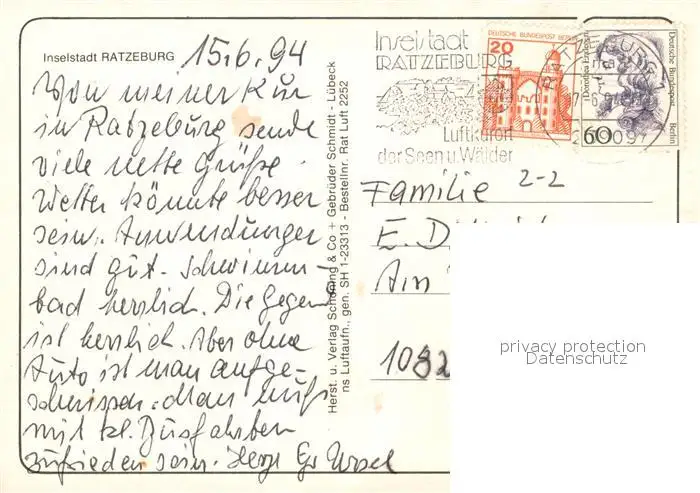 Inselstadt RATZEBURG 15.6.94
Von meiner Kur
in Ratzeburg sende
viele nette Grüße.
Wetter könnte besser
sein. Anwendungen
sind gut. Schwimm-
bad herrlich. Die Gegend
ist herrlich. Aber ohne
Auto ist man aufge-
schmissen. Man muß
mit kl. Busfahrten
zufrieden sein. Herzl Gr
Herst. u. Verlag Schöning & Co + Gebrüder Schmidt - Lübeck
ns Luftaufn., gen. SH 1-23313 - Bestellnr. Rat Luft 2252
Inselstadt
RATZEBURG
Luftkurort
der Seen u. Wälder
DEUTSCHE BUNDESPOST BERLIN
20
RATZEBURG 1
Deutsche Bundespost
Berlin
60
Familie 2-2
E. D
Am
1082
privacy protection
Datenschutz